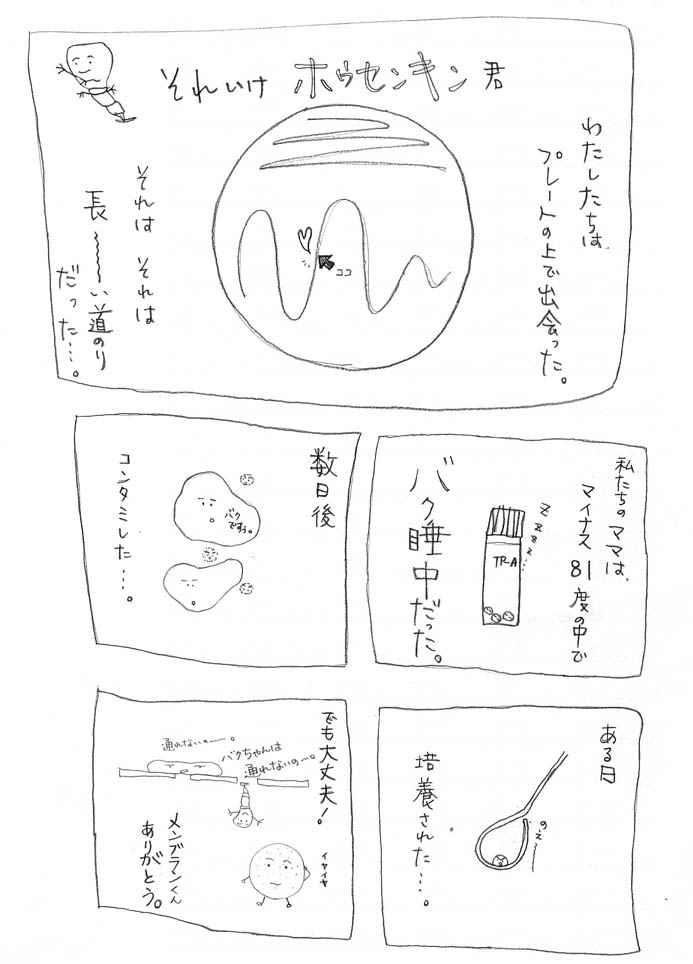 それいけ ホウセンキン君
わたしたちは、
プレートの上で出会った。
ココ
それは それは
長〜〜〜い道のり
だった…。
私たちのママは、
マイナス81度の中で
ZZZZZ…
TR-A
バク睡中だった。
数日後
バク
ですぅ。
コンタミした…。
ある日
のえ〜
培養された…。
でも大丈夫!
通れないの〜。
バクちゃんは
通れないの〜。
イヤイヤ
メンブランくん
ありがとう。